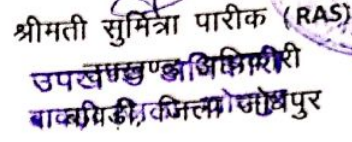 श्रीमती सुमित्रा पारीक (RAS)
उपखण्ड अधिकारी
जिला जोधपुर